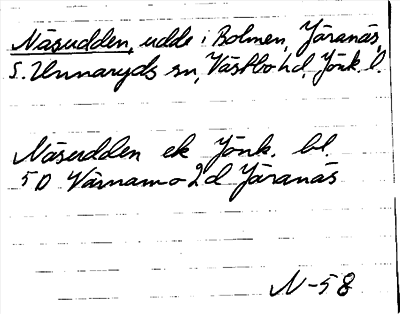 Näsudden, udde i Bolmen, Järanäs,
S. Unnaryds sn, Västbo hd, Jönk. l.
Näsudden ek Jönk. bl
5D Värnamo 2d Järanäs
N-58